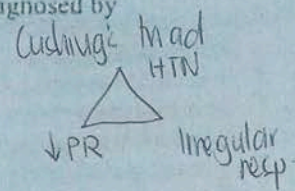 ignosed by
Cushing's triad
HTN
↓PR
Irregular
resp